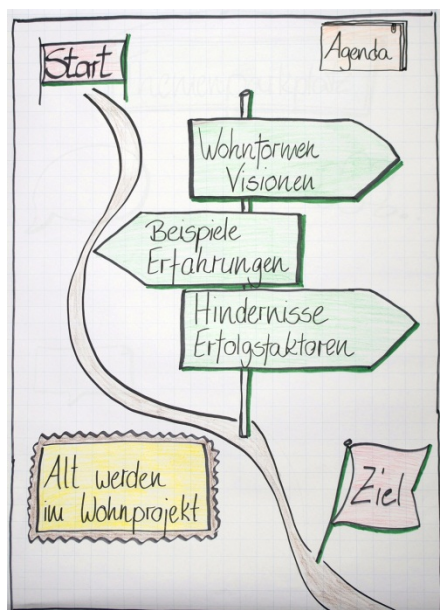 Start
Agenda
Wohnformen
Visionen
Beispiele
Erfahrungen
Hindernisse
Erfolgsfaktoren
Alt werden
im Wohnprojekt
Ziel